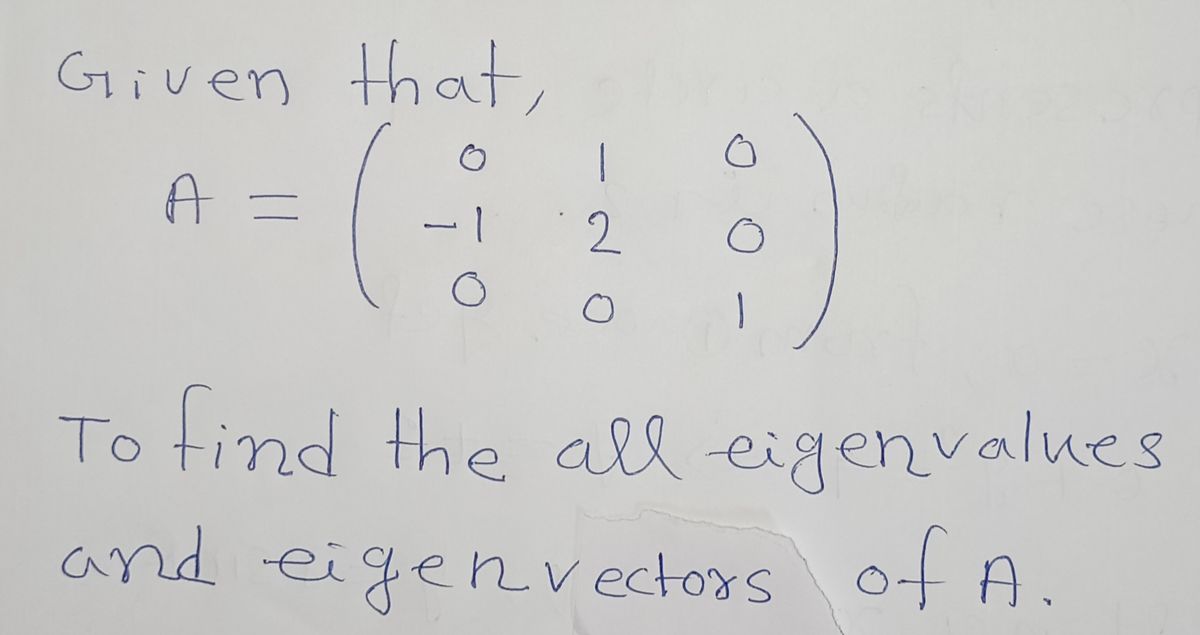 Given that,
A = ( 0 1 0
-1 2 0
0 0 1 )
To find the all eigenvalues
and eigenvectors of A.